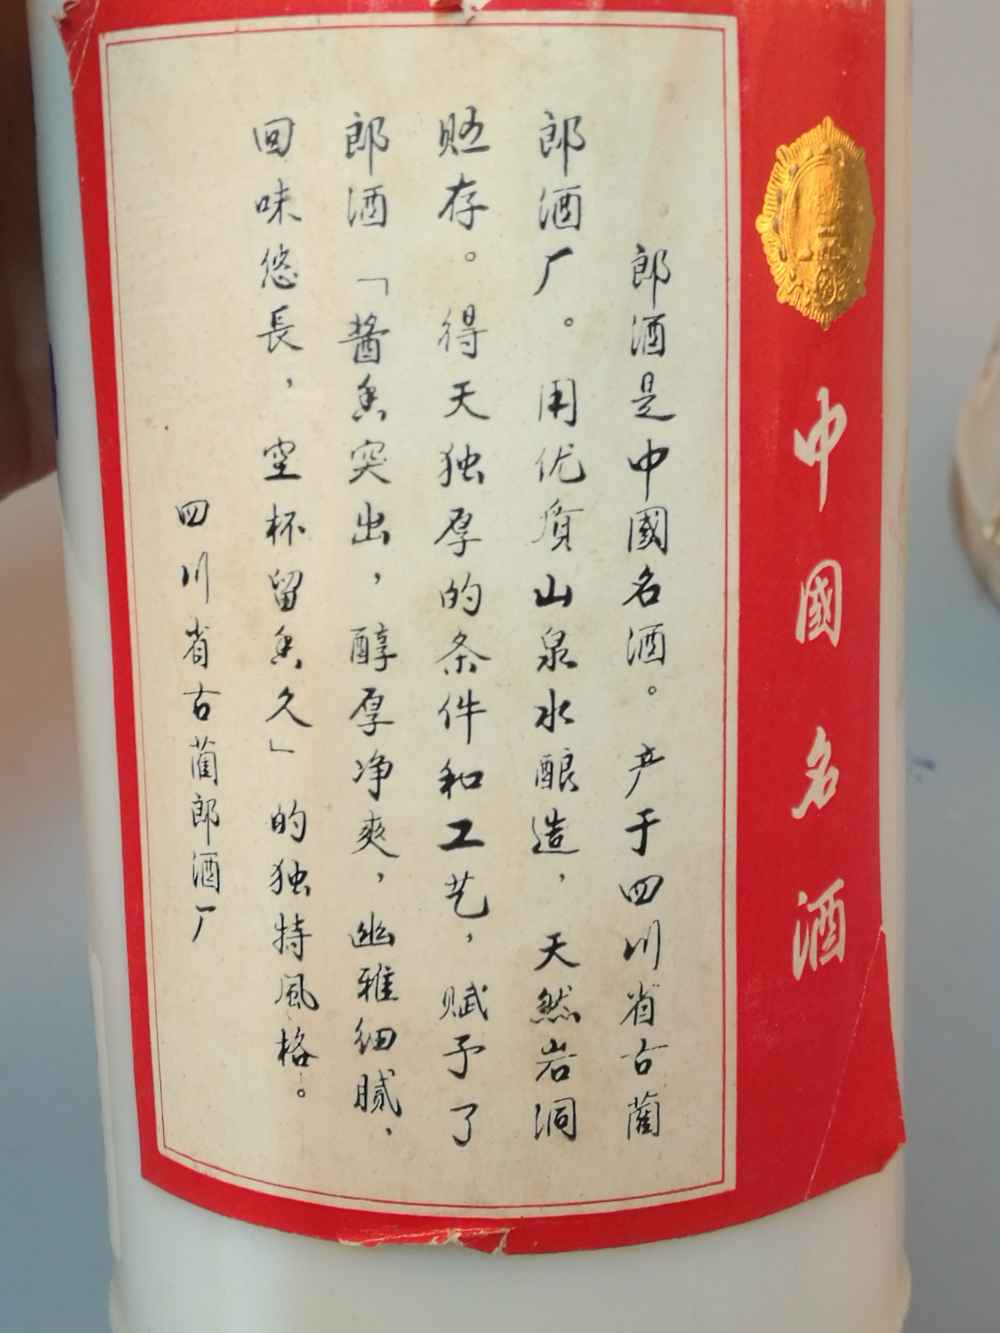 中國名酒
郎酒是中國名酒。产于四川省古蔺
郎酒厂。用优质山泉水酿造，天然岩洞
贮存。得天独厚的条件和工艺，赋予了
郎酒「酱香突出，醇厚净爽，幽雅细腻，
回味悠長，空杯留香久」的独特風格。
四川省古蔺郎酒厂